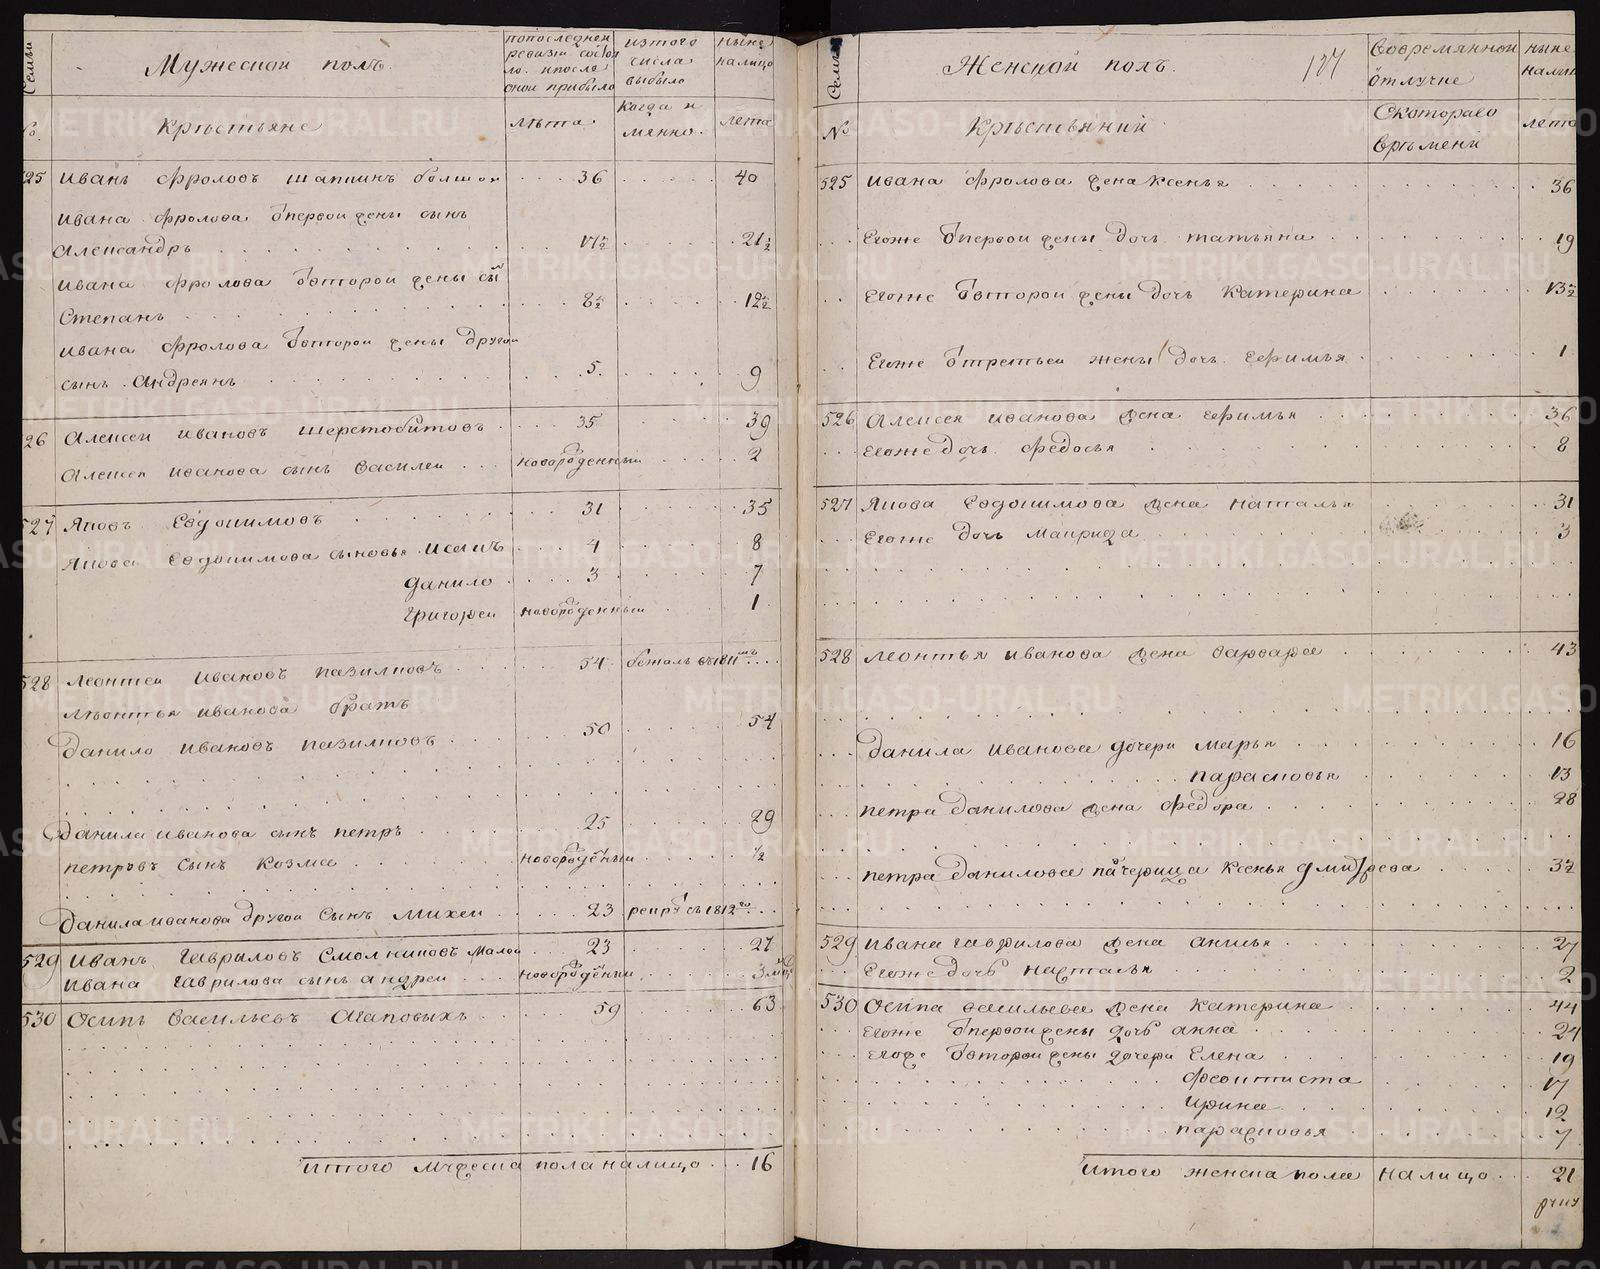 Семьи
Мужескои полъ.
попоследнеи
ревизи состоя
ло. ипосле
онои прибыло
изтого
числа
выбыло
ныне
налицо
№.
Крѣстьяне
лѣта.
когда и
мянно.
лета
525 Иванъ Фроловъ Шапкинъ болшои 36 40
Ивана Фролова ѿпервои жены сынъ
Александръ 17½ 21½
Ивана Фролова ѿвторои жены сынъ
Степанъ 8½ 12½
Ивана Фролова ѿвторои жены другои
сынъ Андреянъ 5 9
526 Алексеи Ивановъ Шерстобитовъ 35 39
Алексея Иванова сынъ Василеи новорожденныи 2
527 Яковъ Евдокимовъ 31 35
Якова Евдокимова сыновья Исакъ 4 8
Данило 3 7
Григореи новорожденныи 1
528 Леонтеи Ивановъ Казилновъ 54 бежалъ въ 1811мъ
Лѣонтья Иванова братъ
Данило Ивановъ Казилновъ 50 54
Данила Иванова сынъ Петръ 25 29
Петровъ сынъ Козма новорожденыи ½
Данила Иванова другои сынъ Михеи 23 рекрутъ съ 1812го
529 Иванъ Гавриловъ Смолниковъ Малои 23 27
Ивана Гаврилова сынъ Андреи новорожденыи 3 мца
530 Осипъ Васильевъ Агаповыхъ 59 63
итого мужеска пола налицо 16
Семьи
Женскои полъ.
127
Вовремяннои
ѿлучке
ныне
налицо
№
Крѣстьянки
Скотораго
времени
лета
525 Ивана Фролова жена Ксенья 36
Егоже ѿпервои жены дочь Татьяна 19
Егоже ѿвторои жены дочь Катерина 13½
Егоже ѿтретьеи жены дочь Ефимья 1
526 Алексея Иванова жена Ефимья 36
Егоже дочь Федосья 8
527 Якова Евдокимова жена Наталья 31
Егоже дочь Маприда 3
528 Леонтья Иванова жена Варвара 43
Данила Иванова дочери Марья 16
Парасковья 13
Петра Данилова жена Федора 28
Петра Данилова патчерица Ксенья Дмитрева 3½
529 Ивана Гаврилова жена Анисья 27
Егоже дочь Наталья 2
530 Осипа Васильева жена Катерина 44
Егоже ѿпервои жены дочь Анна 24
Егоже ѿвторои жены дочери Елена 19
Феоктиста 17
Ирина 12
Парасковья 7
итого женска пола налицо 21
METRIKI.GASO-URAL.RU